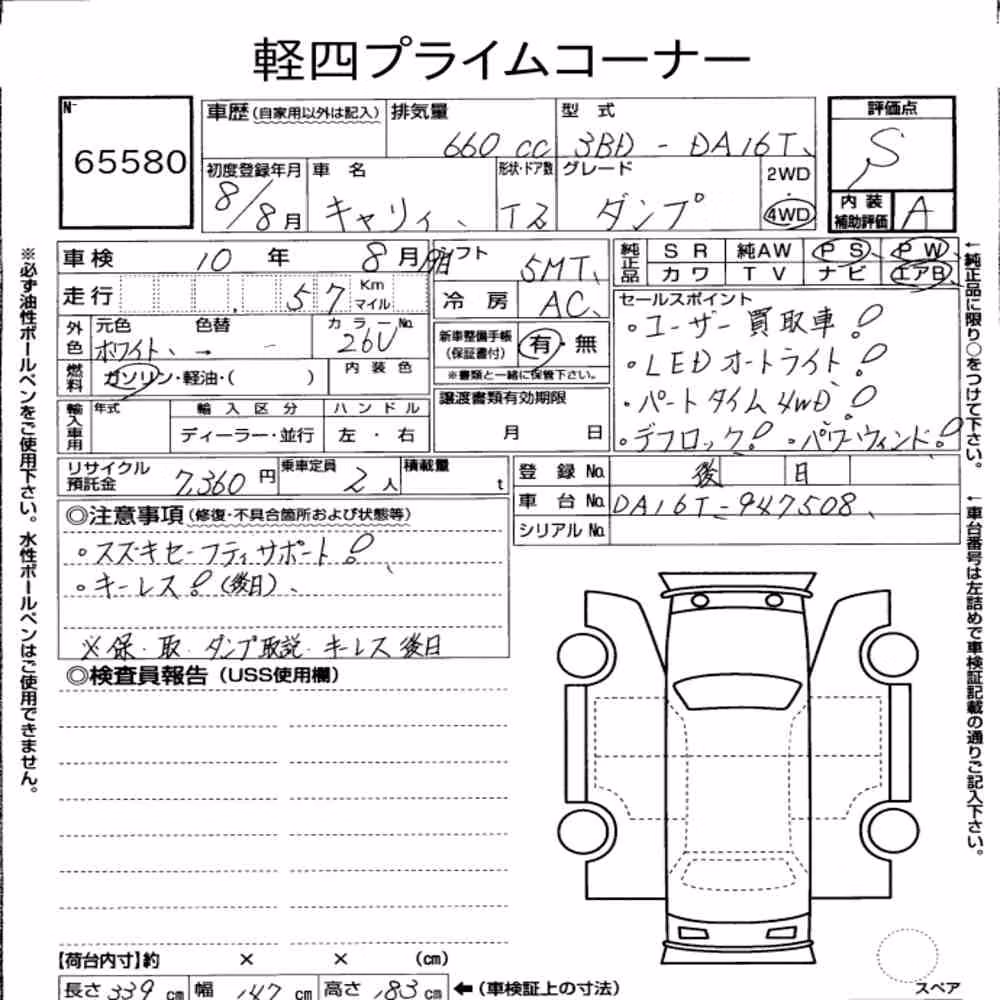 軽四プライムコーナー
N-
65580
車歴(自家用以外は記入) 排気量 660 cc 型式 3BD - DA16T、
評価点 S
初度登録年月 8/8月 車名 キャリィ、 形状・ドア数 T2 グレード ダンプ 2WD・4WD
内装補助評価 A
車検 10年 8月 シフト 5MT、
純正品 SR 純AW PS PW
カワ TV ナビ エアB
走行 57 Km マイル 冷房 AC、
セールスポイント
・ユーザー買取車!
・LEDオートライト!
・パートタイム4WD!
・デフロック!・パワーウィンド!
外色 元色 色替 カラーNo.
ホワイト、→ - 26U
新車整備手帳(保証書付) 有・無
※書類と一緒に保管下さい。
燃料 ガソリン・軽油・( ) 内装色
譲渡書類有効期限
月 日
輸入車用 年式 輸入区分 ハンドル
ディーラー・並行 左・右
リサイクル預託金 7,360円 乗車定員 2人 積載量 t
登録No. 後日
車台No. DA16T-947508、
シリアルNo.
◎注意事項(修復・不具合箇所および状態等)
・スズキセーフティサポート!
・キーレス!(後日)、
※保・取・ダンプ取説・キーレス後日
◎検査員報告(USS使用欄)
【荷台内寸】約 × × (cm)
長さ 339 cm 幅 147 cm 高さ 183 cm ←(車検証上の寸法)
スペア
※必ず油性ボールペンをご使用下さい。水性ボールペンはご使用できません。
←純正品に限り○をつけて下さい。
←車台番号は左詰めで車検証記載の通りご記入下さい。